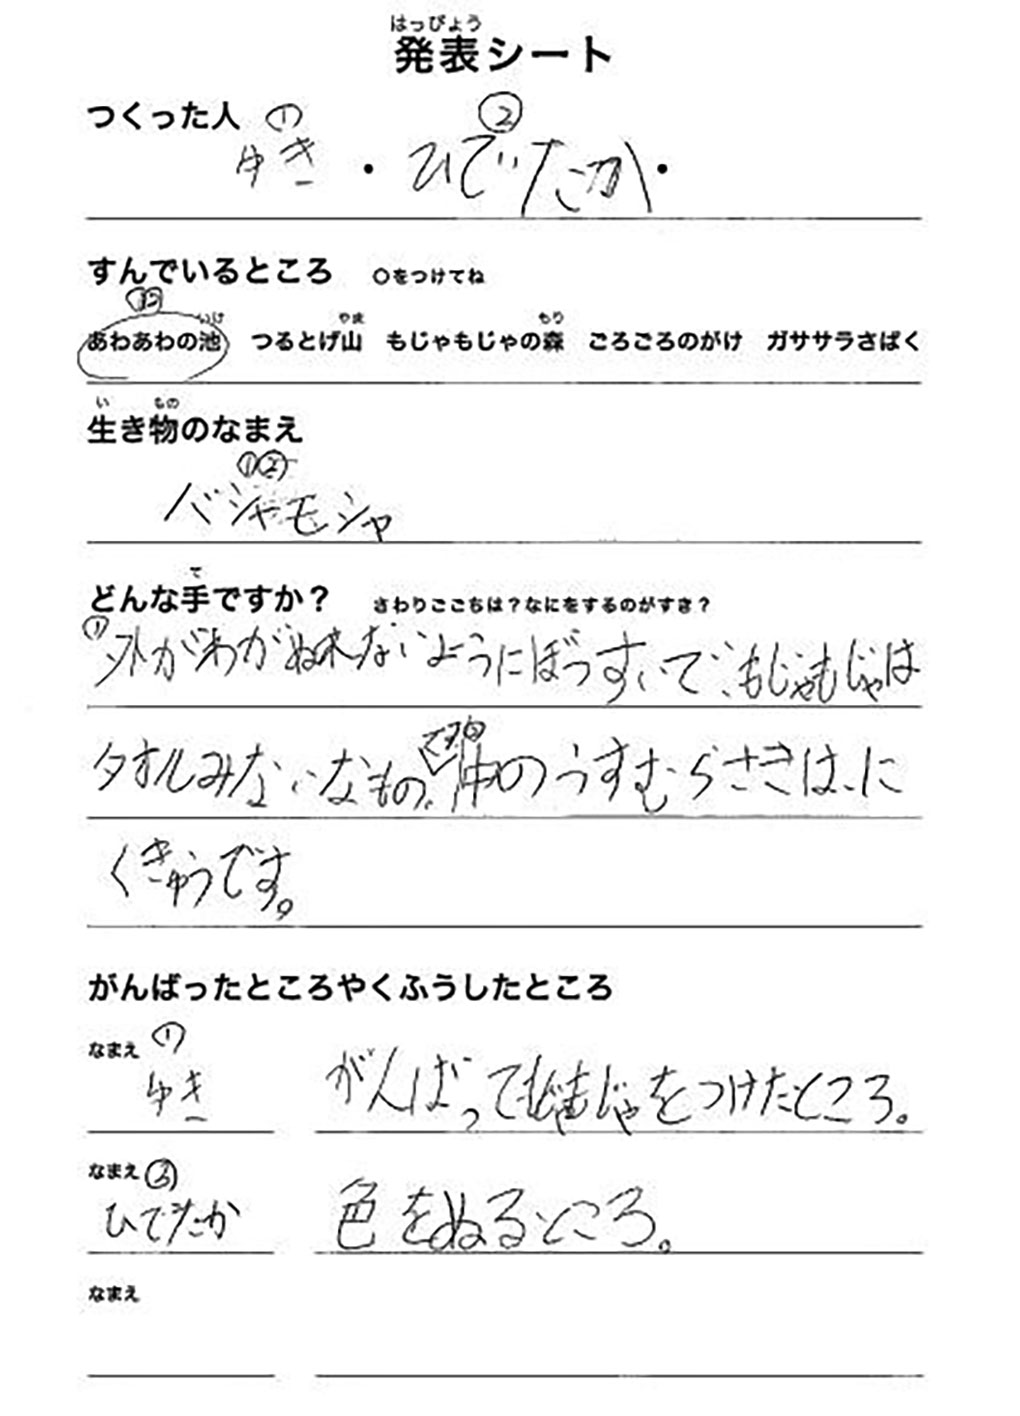 はっぴょう
発表シート
つくった人 ① ②
ゆき・ひでたか・
すんでいるところ ○をつけてね
いけ やま もり
あわあわの池 つるとげ山 もじゃもじゃの森 ごろごろのがけ ガササラさばく
い もの
生き物のなまえ
①②
バシャモシャ
て
どんな手ですか？ さわりごこちは？なにをするのがすき？
① 外がわがぬれないようにぼうすいで、もじゃもじゃは
タオルみたいなもの、中のうすむらさきは、に
くきゅうです。
がんばったところやくふうしたところ
なまえ ①
ゆき がんばってもじゃもじゃをつけたところ。
なまえ ②
ひでたか 色をぬるところ。
なまえ